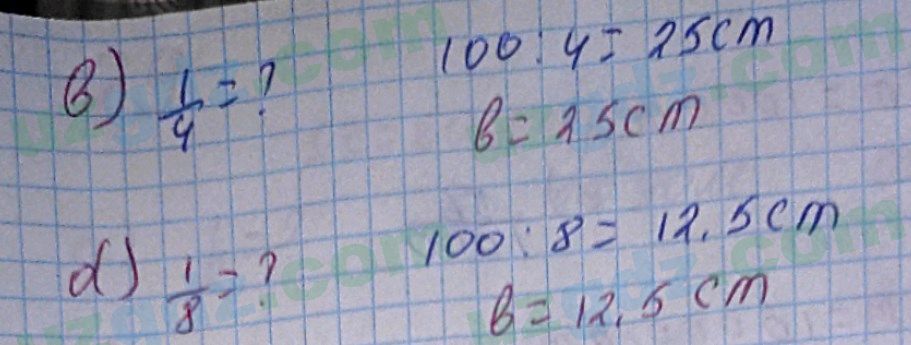 b) 1/4 = ? 100 : 4 = 25 cm
b = 25 cm
d) 1/8 = ? 100 : 8 = 12.5 cm
b = 12.5 cm